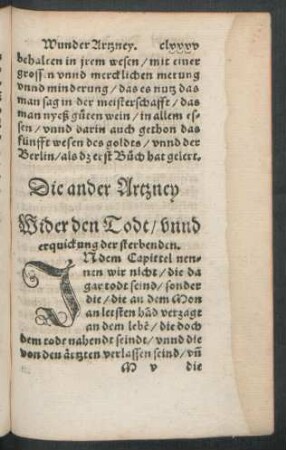 Wunder Artzney. clxxxv
behalten in jrem wesen / mit einer
grossen vnnd mercklichen merung
vnnd minderung / das es nutz das
man sag in der meisterschafft / das
man nyeß gůten wein / in allem es-
sen / vnnd darin auch gethon das
fünfft wesen des goldts / vnnd der
Berlin / als dz erst Bůch hat gelert.
Die ander Artzney
Wider den Todt / vnnd
erquickung der sterbenden.
IN dem Capittel nen-
nen wir nicht / die da
gar todt seind / sonder
die / die an dem Mon
an letsten hãd verzagt
an dem lebẽ / die doch
dem todt nahendt seindt / vnnd die
von den ärtzten verlassen seind / vñ
M v die